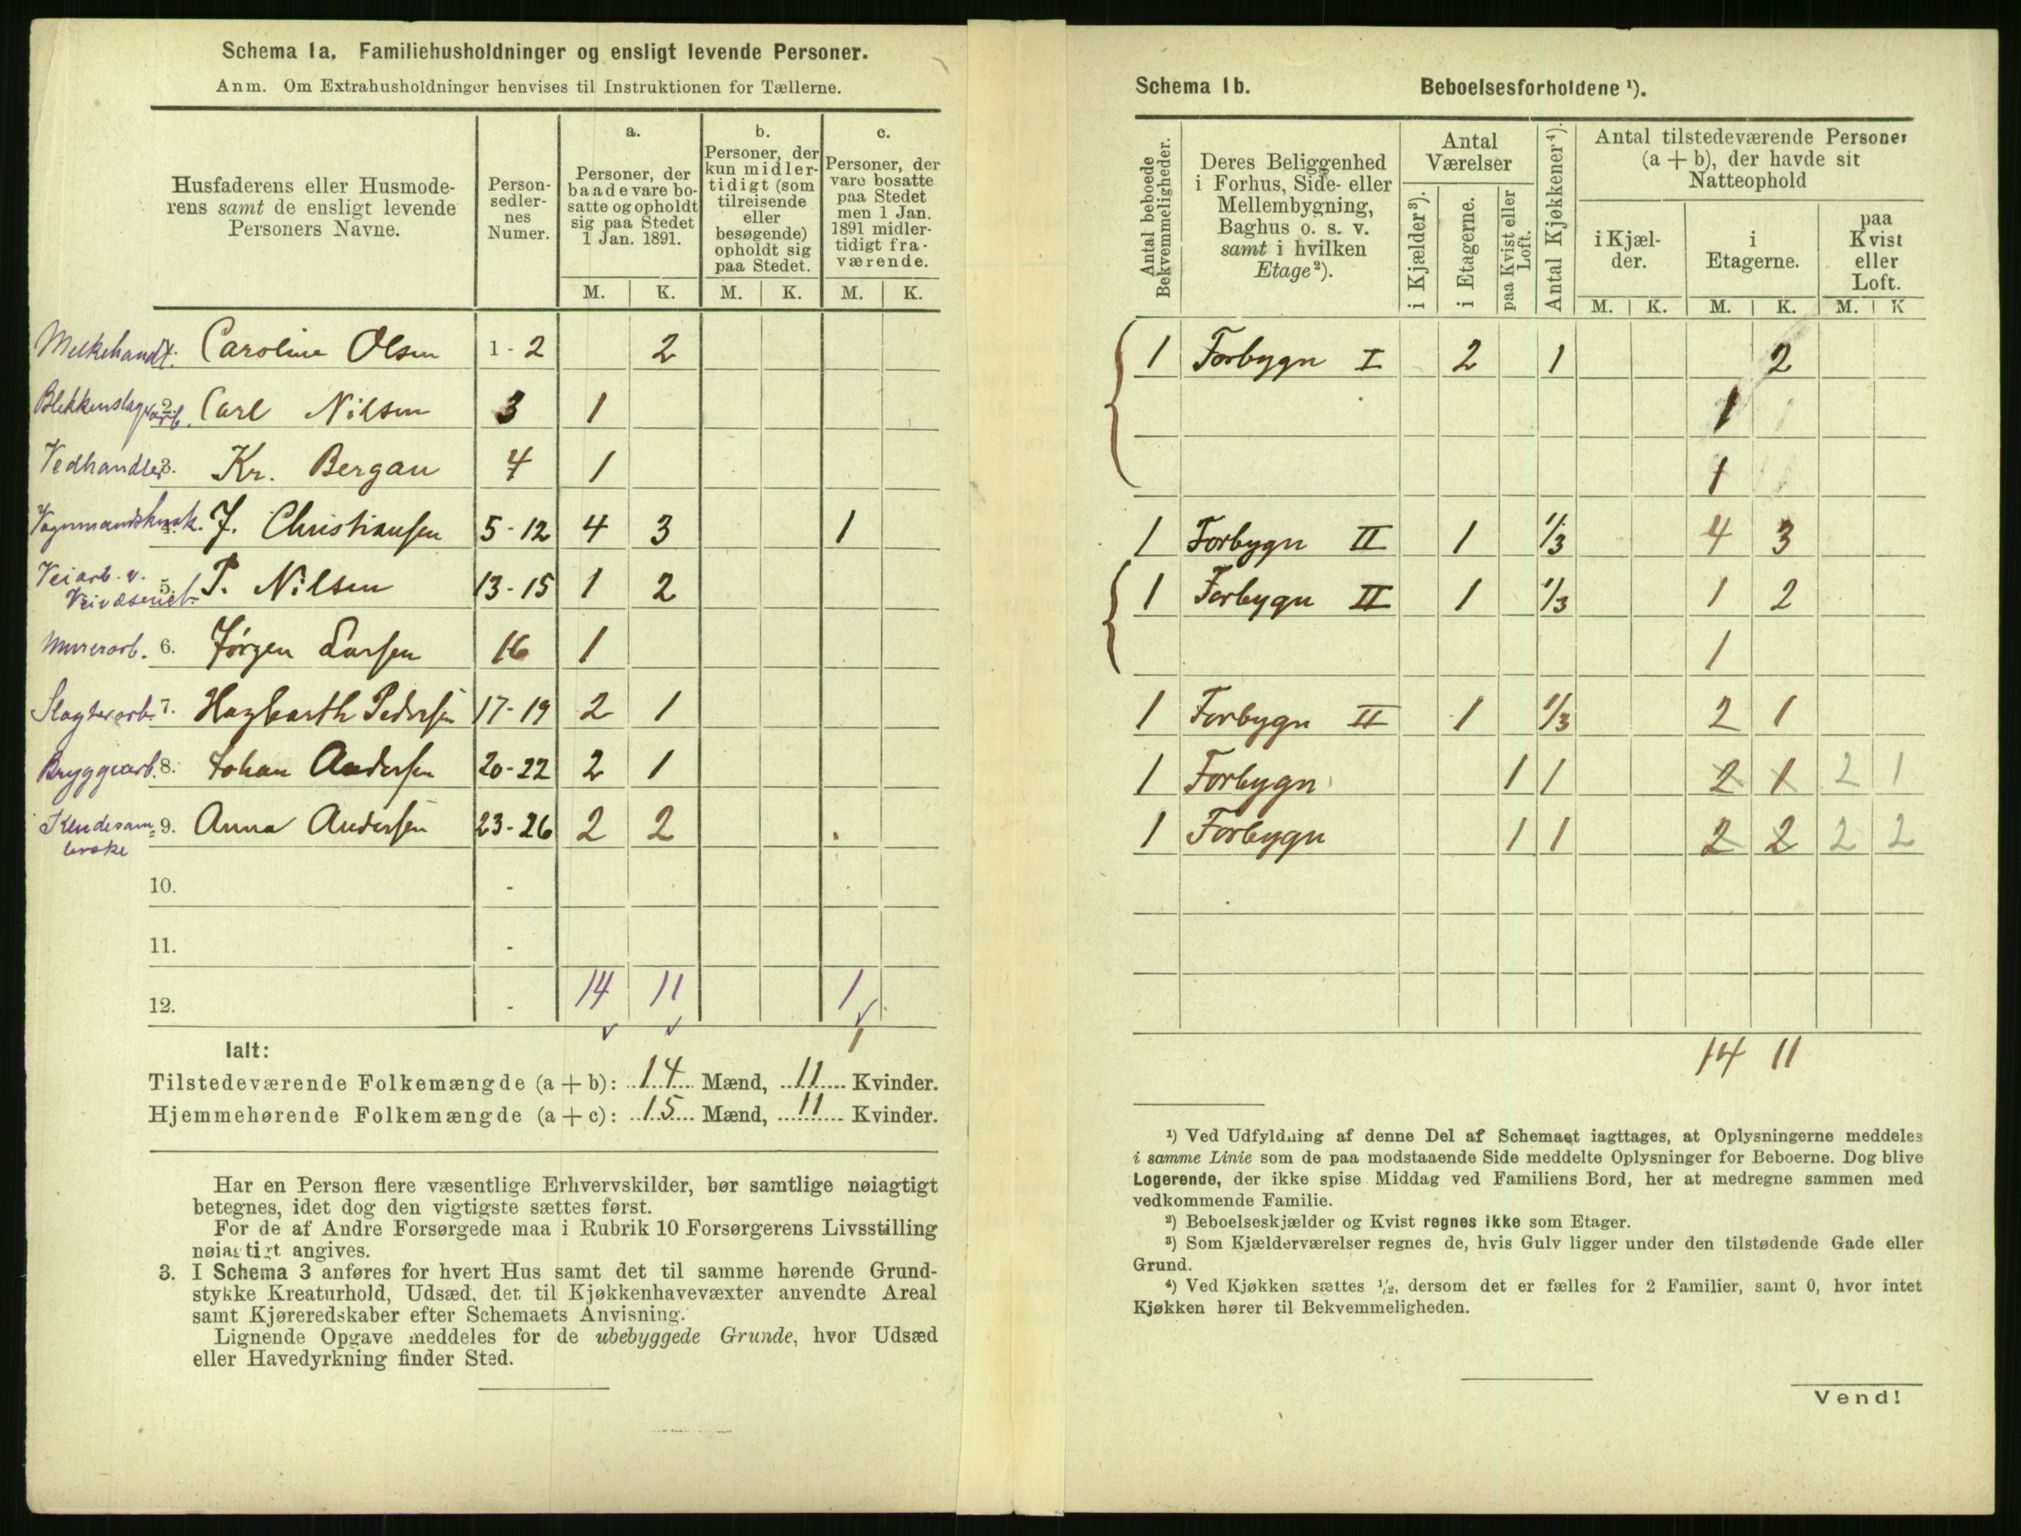 Schema 1a. Familiehusholdninger og ensligt levende Personer.
Anm. Om Extrahusholdninger henvises til Instruktionen for Tællerne.
Husfaderens eller Husmode-
rens samt de ensligt levende
Personers Navne.
Person-
sedler-
nes
Numer.
a.
Personer, der
baade vare bo-
satte og opholdt
sig paa Stedet
1 Jan. 1891.
b.
Personer, der
kun midler-
tidigt (som
tilreisende
eller
besøgende)
opholdt sig
paa Stedet.
c.
Personer, der
vare bosatte
paa Stedet
men 1 Jan.
1891 midler-
tidigt fra-
værende.
M. K. M. K. M. K.
Melkehandl. Caroline Olsen 1 - 2 2
Blekkenslagerarb. 2. Carl Nilsen 3 1
Vedhandler 3. Kr. Bergan 4 1
4. J. Christiansen 5 - 12 4 3 1
Veiarb. v.
Veivæsenet 5. P. Nilsen 13 - 15 1 2
Murerarb. 6. Jørgen Larsen 16 1
Slagterarb. 7. Hagbarth Pedersen 17 - 19 2 1
Bryggearb. 8. Johan Andersen 20 - 22 2 1
9. Anna Andersen 23 - 26 2 2
10. -
11. -
12. - 14 11 1
1
Ialt:
Tilstedeværende Folkemængde (a + b): 14 Mænd, 11 Kvinder.
Hjemmehørende Folkemængde (a + c): 15 Mænd, 11 Kvinder.
Har en Person flere væsentlige Erhvervskilder, bør samtlige nøiagtigt
betegnes, idet dog den vigtigste sættes først.
For de af Andre Forsørgede maa i Rubrik 10 Forsørgerens Livsstilling
nøiagtigt angives.
3. I Schema 3 anføres for hvert Hus samt det til samme hørende Grund-
stykke Kreaturhold, Udsæd, det til Kjøkkenhavevæxter anvendte Areal
samt Kjøreredskaber efter Schemaets Anvisning.
Lignende Opgave meddeles for de ubebyggede Grunde, hvor Udsæd
eller Havedyrkning finder Sted.
Schema 1b. Beboelsesforholdene ¹).
Antal beboede
Bekvemmeligheder.
Deres Beliggenhed
i Forhus, Side- eller
Mellembygning,
Baghus o. s. v.
samt i hvilken
Etage ²).
Antal
Værelser
i Kjælder ³).
i Etagerne.
paa Kvist eller
Loft.
Antal Kjøkkener ⁴).
Antal tilstedeværende Personer
(a + b), der havde sit
Natteophold
i Kjæl-
der.
i
Etagerne.
paa
Kvist
eller
Loft.
M. K. M. K. M. K
1 Forbygn I 2 1 2
1
1
1 Forbygn II 1 1/3 4 3
1 Forbygn II 1 1/3 1 2
1
1 Forbygn II 1 1/3 2 1
1 Forbygn 1 1 2 1 2 1
1 Forbygn 1 1 2 2 2 2
14 11
¹) Ved Udfyldning af denne Del af Schemaet iagttages, at Oplysningerne meddeles
i samme Linie som de paa modstaaende Side meddelte Oplysninger for Beboerne. Dog blive
Logerende, der ikke spise Middag ved Familiens Bord, her at medregne sammen med
vedkommende Familie.
²) Beboelseskjælder og Kvist regnes ikke som Etager.
³) Som Kjælderværelser regnes de, hvis Gulv ligger under den tilstødende Gade eller
Grund.
⁴) Ved Kjøkken sættes ½, dersom det er fælles for 2 Familier, samt 0, hvor intet
Kjøkken hører til Bekvemmeligheden.
Vend!